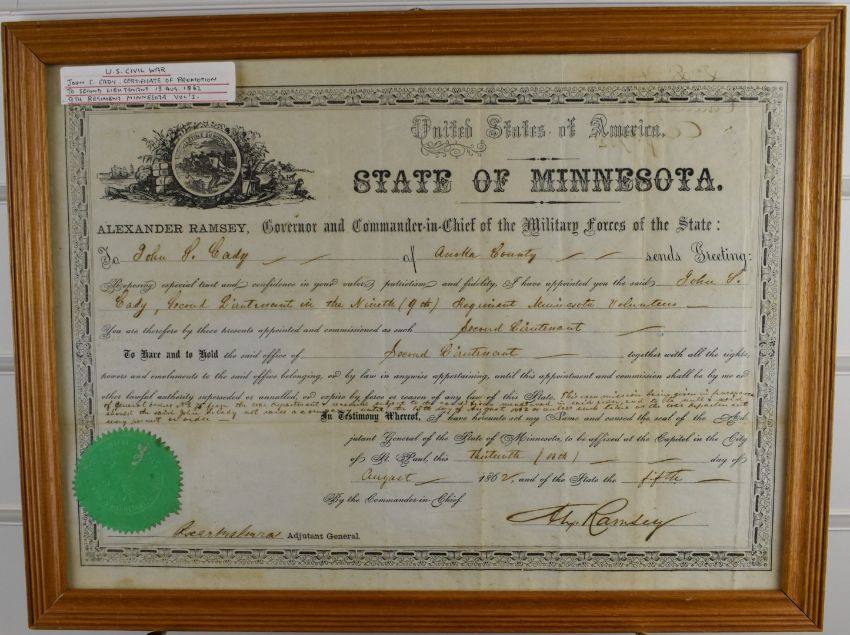 U.S. CIVIL WAR
JOHN S. CADY. CERTIFICATE OF PROMOTION
TO SECOND LIEUTENANT 13 AUG. 1862
9TH REGIMENT MINNESOTA VOL'S.
United States of America.
STATE OF MINNESOTA.
ALEXANDER RAMSEY, Governor and Commander-in-Chief of the Military Forces of the State:
To John S. Cady of Anoka County sends Greeting:
Reposing especial trust and confidence in your valor, patriotism and fidelity, I have appointed you the said John S.
Cady, Second Lieutenant in the Nineth (9th) Regiment Minnesota Volunteers
You are therefore by these presents appointed and commissioned as such Second Lieutenant
To Have and to Hold the said office of Second Lieutenant together with all the rights,
powers and emoluments to the said office belonging, or by law in anywise appertaining, until this appointment and commission shall be by me or
other lawful authority superseded or annulled, or expire by force or reason of any law of this State. This commission being given in pursuance
of General Orders No. from the War Department
should the said John S. Cady not raise a company until the 15th day of August 1862 or unless such time as the War Department
may permit or order In Testimony Whereof, I have hereunto set my Name and caused the seal of the Ad-
jutant General of the State of Minnesota, to be affixed at the Capitol in the City
of St. Paul, this thirteenth (13th) day of
August 1862, and of the State the fifth
By the Commander-in-Chief.
Alex Ramsey
Adjutant General.